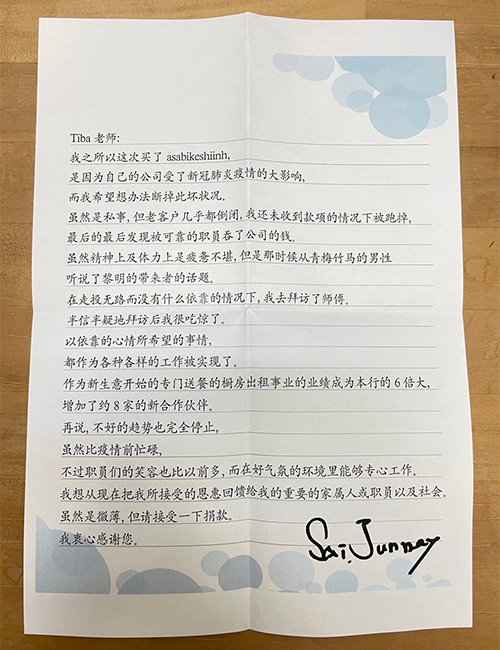 Tiba 老师:
我之所以这次买了 asabikeshiinh,
是因为自己的公司受了新冠肺炎疫情的大影响,
而我希望想办法断掉此坏状况.
虽然是私事, 但老客户几乎都倒闭, 我还未收到款项的情况下被跑掉,
最后的最后发现被可靠的职员吞了公司的钱。
虽然精神上及体力上是疲惫不堪, 但是那时候从青梅竹马的男性
听说了黎明的带来者的话题。
在走投无路而没有什么依靠的情况下, 我去拜访了师傅。
半信半疑地拜访后我很吃惊了。
以依靠的心情所希望的事情,
都作为各种各样的工作被实现了。
作为新生意开始的专门送餐的橱房出租事业的业绩成为本行的 6 倍大,
增加了约 8 家的新合作伙伴。
再说, 不好的趋势也完全停止,
虽然比疫情前忙碌,
不过职员们的笑容也比以前多, 而在好气氛的环境里能够专心工作。
我想从现在把我所接受的恩惠回馈给我的重要的家属人或职员以及社会。
虽然是微薄, 但请接受一下捐款。
我衷心感谢您。
Sai. Junney